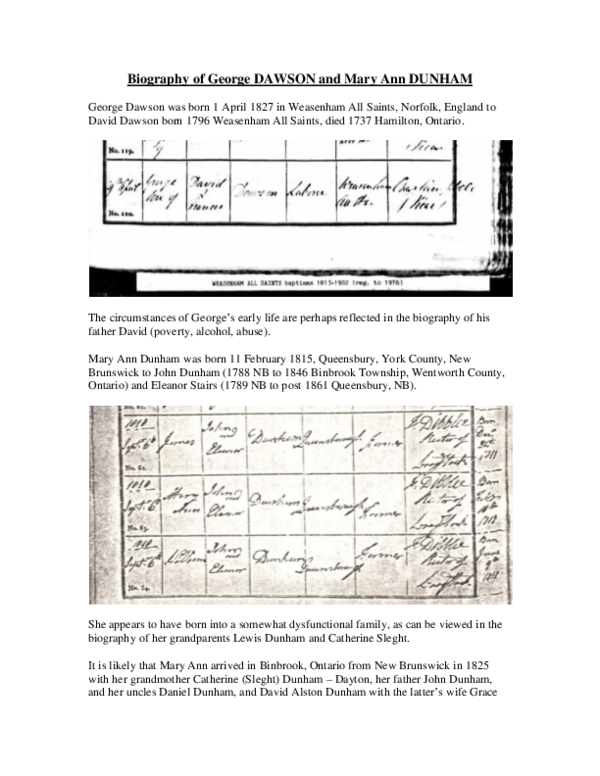 Biography of George DAWSON and Mary Ann DUNHAM
George Dawson was born 1 April 1827 in Weasenham All Saints, Norfolk, England to
David Dawson born 1796 Weasenham All Saints, died 1737 Hamilton, Ontario.
No. 119.
George David Dawson Labour
son of Frances
No. 120.
WEASENHAM ALL SAINTS baptisms 1813-1902 (reg. to 1976)
The circumstances of George's early life are perhaps reflected in the biography of his
father David (poverty, alcohol, abuse).
Mary Ann Dunham was born 11 February 1815, Queensbury, York County, New
Brunswick to John Dunham (1788 NB to 1846 Binbrook Township, Wentworth County,
Ontario) and Eleanor Stairs (1789 NB to post 1861 Queensbury, NB).
John J. Dibblee Born
Sept. 6th James and Dunham Queensbury Farmer Rector of
Eleanor
John J. Dibblee Born
Sept. 6th Ann and Dunham Queensbury Farmer Rector of
Eleanor
John J. Dibblee Born
Sept. 6th William and Dunham Queensbury Farmer Rector of
Eleanor
She appears to have born into a somewhat dysfunctional family, as can be viewed in the
biography of her grandparents Lewis Dunham and Catherine Sleght.
It is likely that Mary Ann arrived in Binbrook, Ontario from New Brunswick in 1825
with her grandmother Catherine (Sleght) Dunham – Dayton, her father John Dunham,
and her uncles Daniel Dunham, and David Alston Dunham with the latter's wife Grace